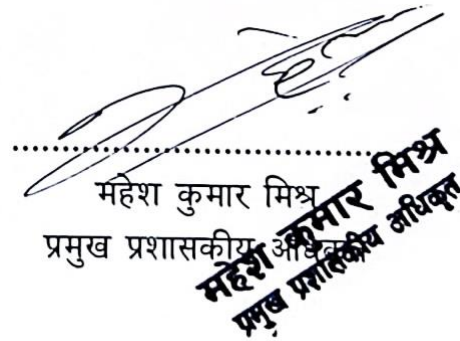 महेश कुमार मिश्र
प्रमुख प्रशासकीय अधिकृत
महेश कुमार मिश्र
प्रमुख प्रशासकीय अधिकृत